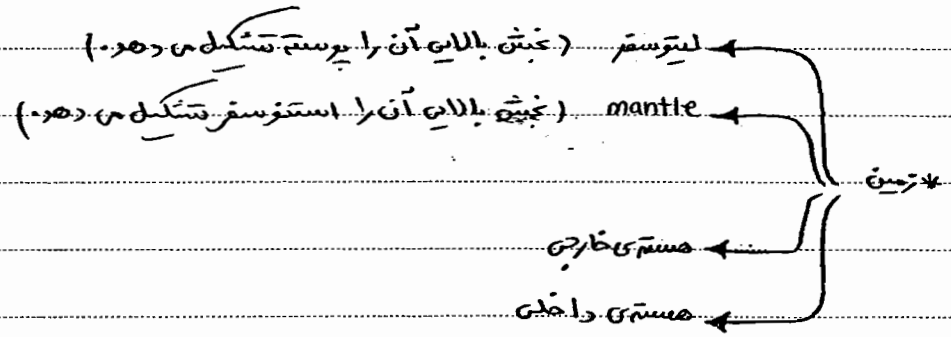 لیتوسفر (بخش بالایی آن را پوسته تشکیل می دهد.)
mantle (بخش بالایی آن را استنوسفر تشکیل می دهد.)
* زمین
هسته‌ی خارجی
هسته‌ی داخلی